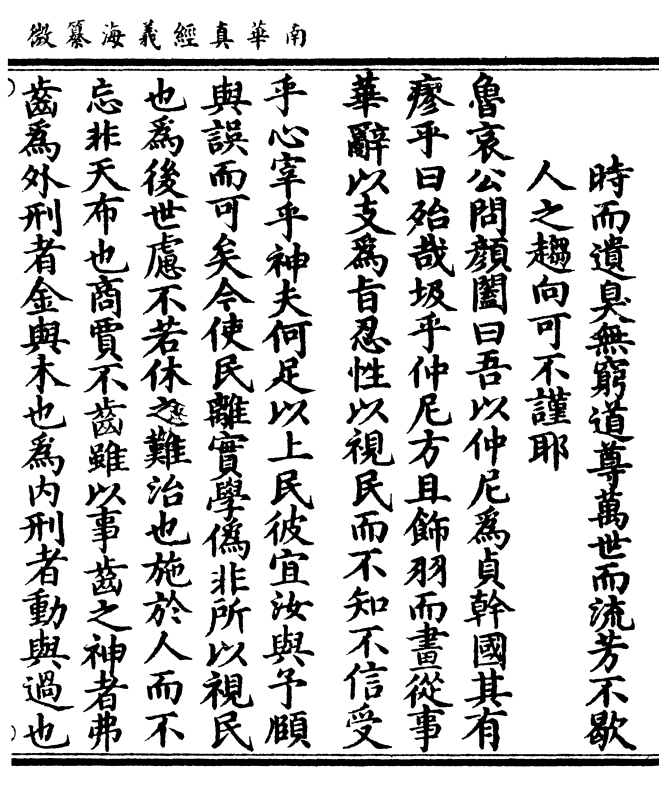 南華真經義海纂微
時而遺臭無窮道尊萬世而流芳不歇
人之趨向可不謹耶
魯哀公問顔闔曰吾以仲尼爲貞幹國其有
瘳乎曰殆哉圾乎仲尼方且飾羽而畫從事
華辭以支爲旨忍性以視民而不知不信受
乎心宰乎神夫何足以上民彼宜汝與予頤
與誤而可矣今使民離實學僞非所以視民
也爲後世慮不若休之難治也施於人而不
忘非天布也商賈不齒雖以事齒之神者弗
齒爲外刑者金與木也爲内刑者動與過也